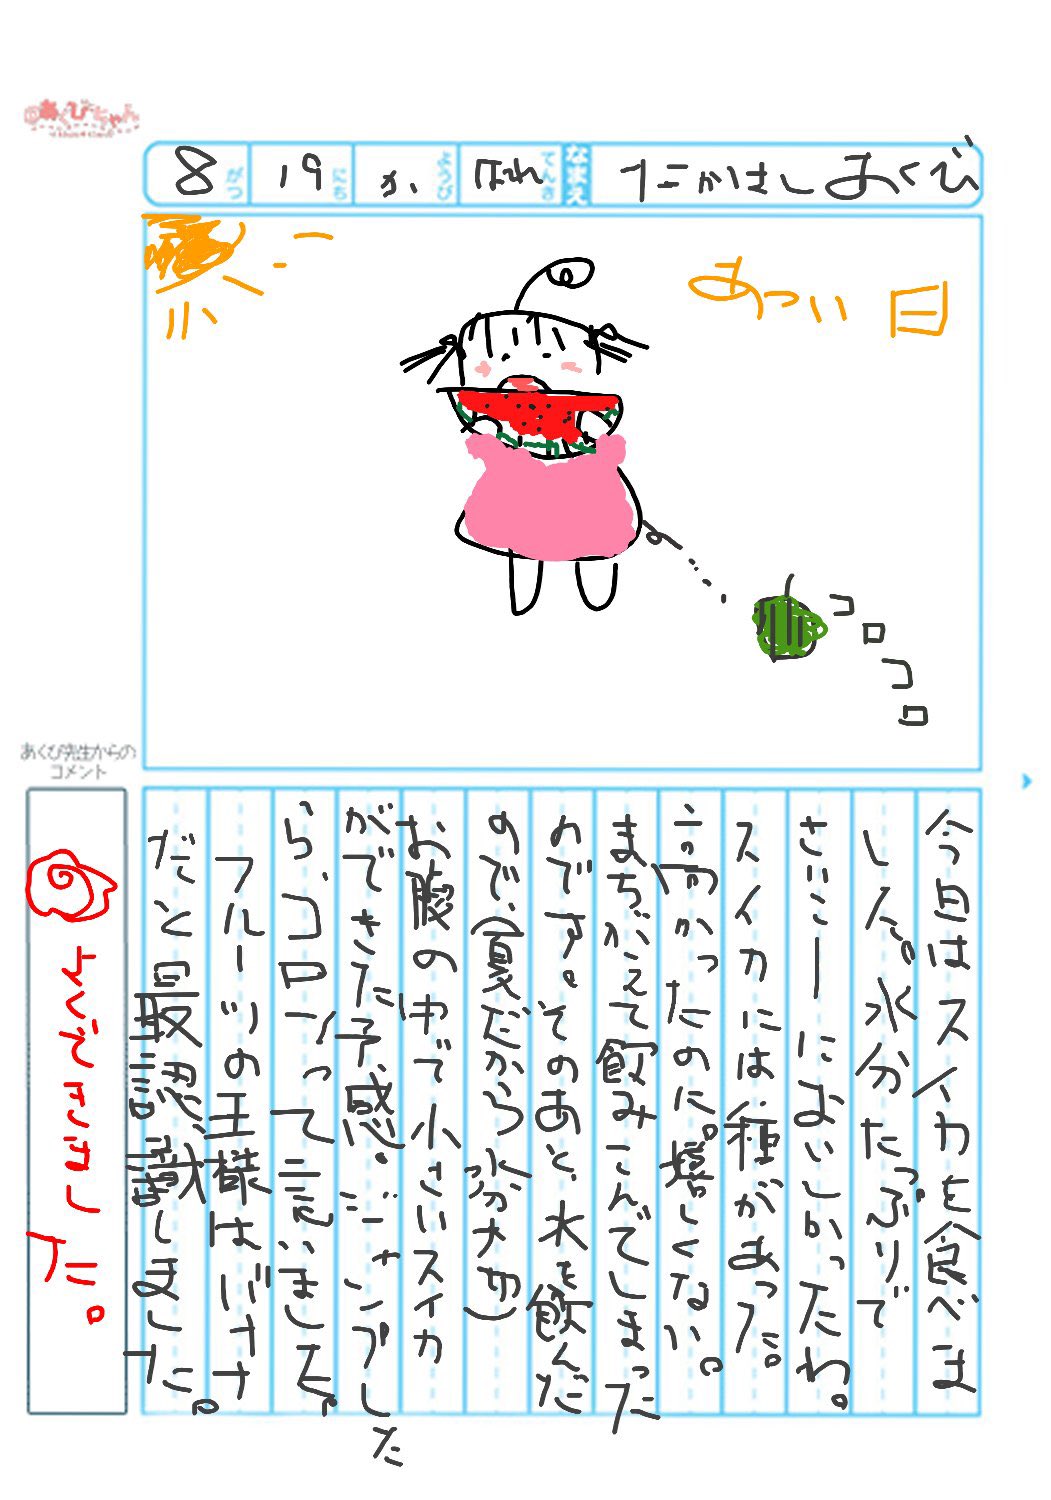 あくびちゃん
8 がつ 19 にち か ようび はれ てんき なまえ たかはしあくび
あつい日
コロコロ
今日はスイカを食べま
した。水分たっぷりで
さいこーにおいしかったわ。
スイカには、種があった。
言卵かったのに。嬉しくない。
まちがえて飲みこんでしまった
のです。そのあと、水を飲んだ
ので、(夏だから水分大切)
お腹の中で小さいスイカ
ができた予感。ジャンプした
ら、コロンって言いました。
フルーツの王様はバナナ
だと最認識しました。
あくび先生からの
コメント
よくできました。